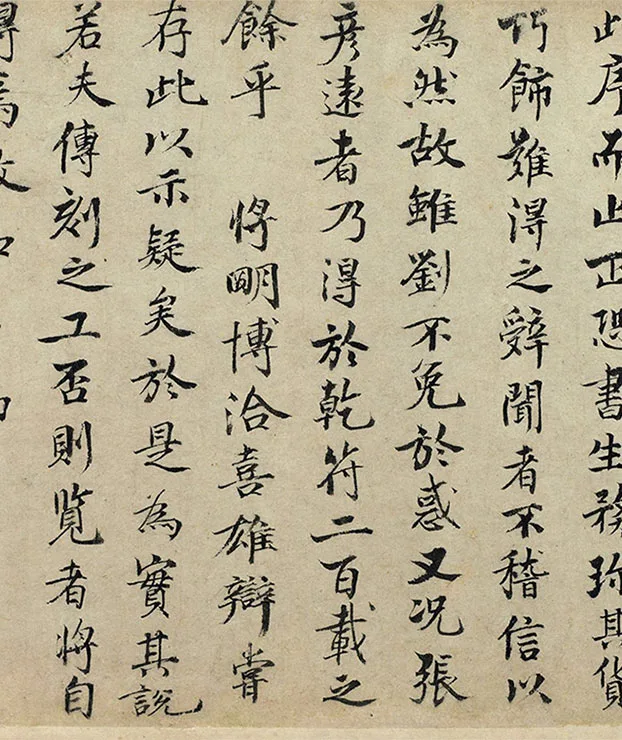 此序而止正恐書生務珎其貨
巧餙難得之辭聞者不稽信以
為然故雖劉不免於惑又况張
彦遠者乃得於乾符二百載之
餘乎 將明博洽喜雄辯嘗
存此以示疑矣於是為實其說
若夫傳刻之工否則覧者將自
得焉政和